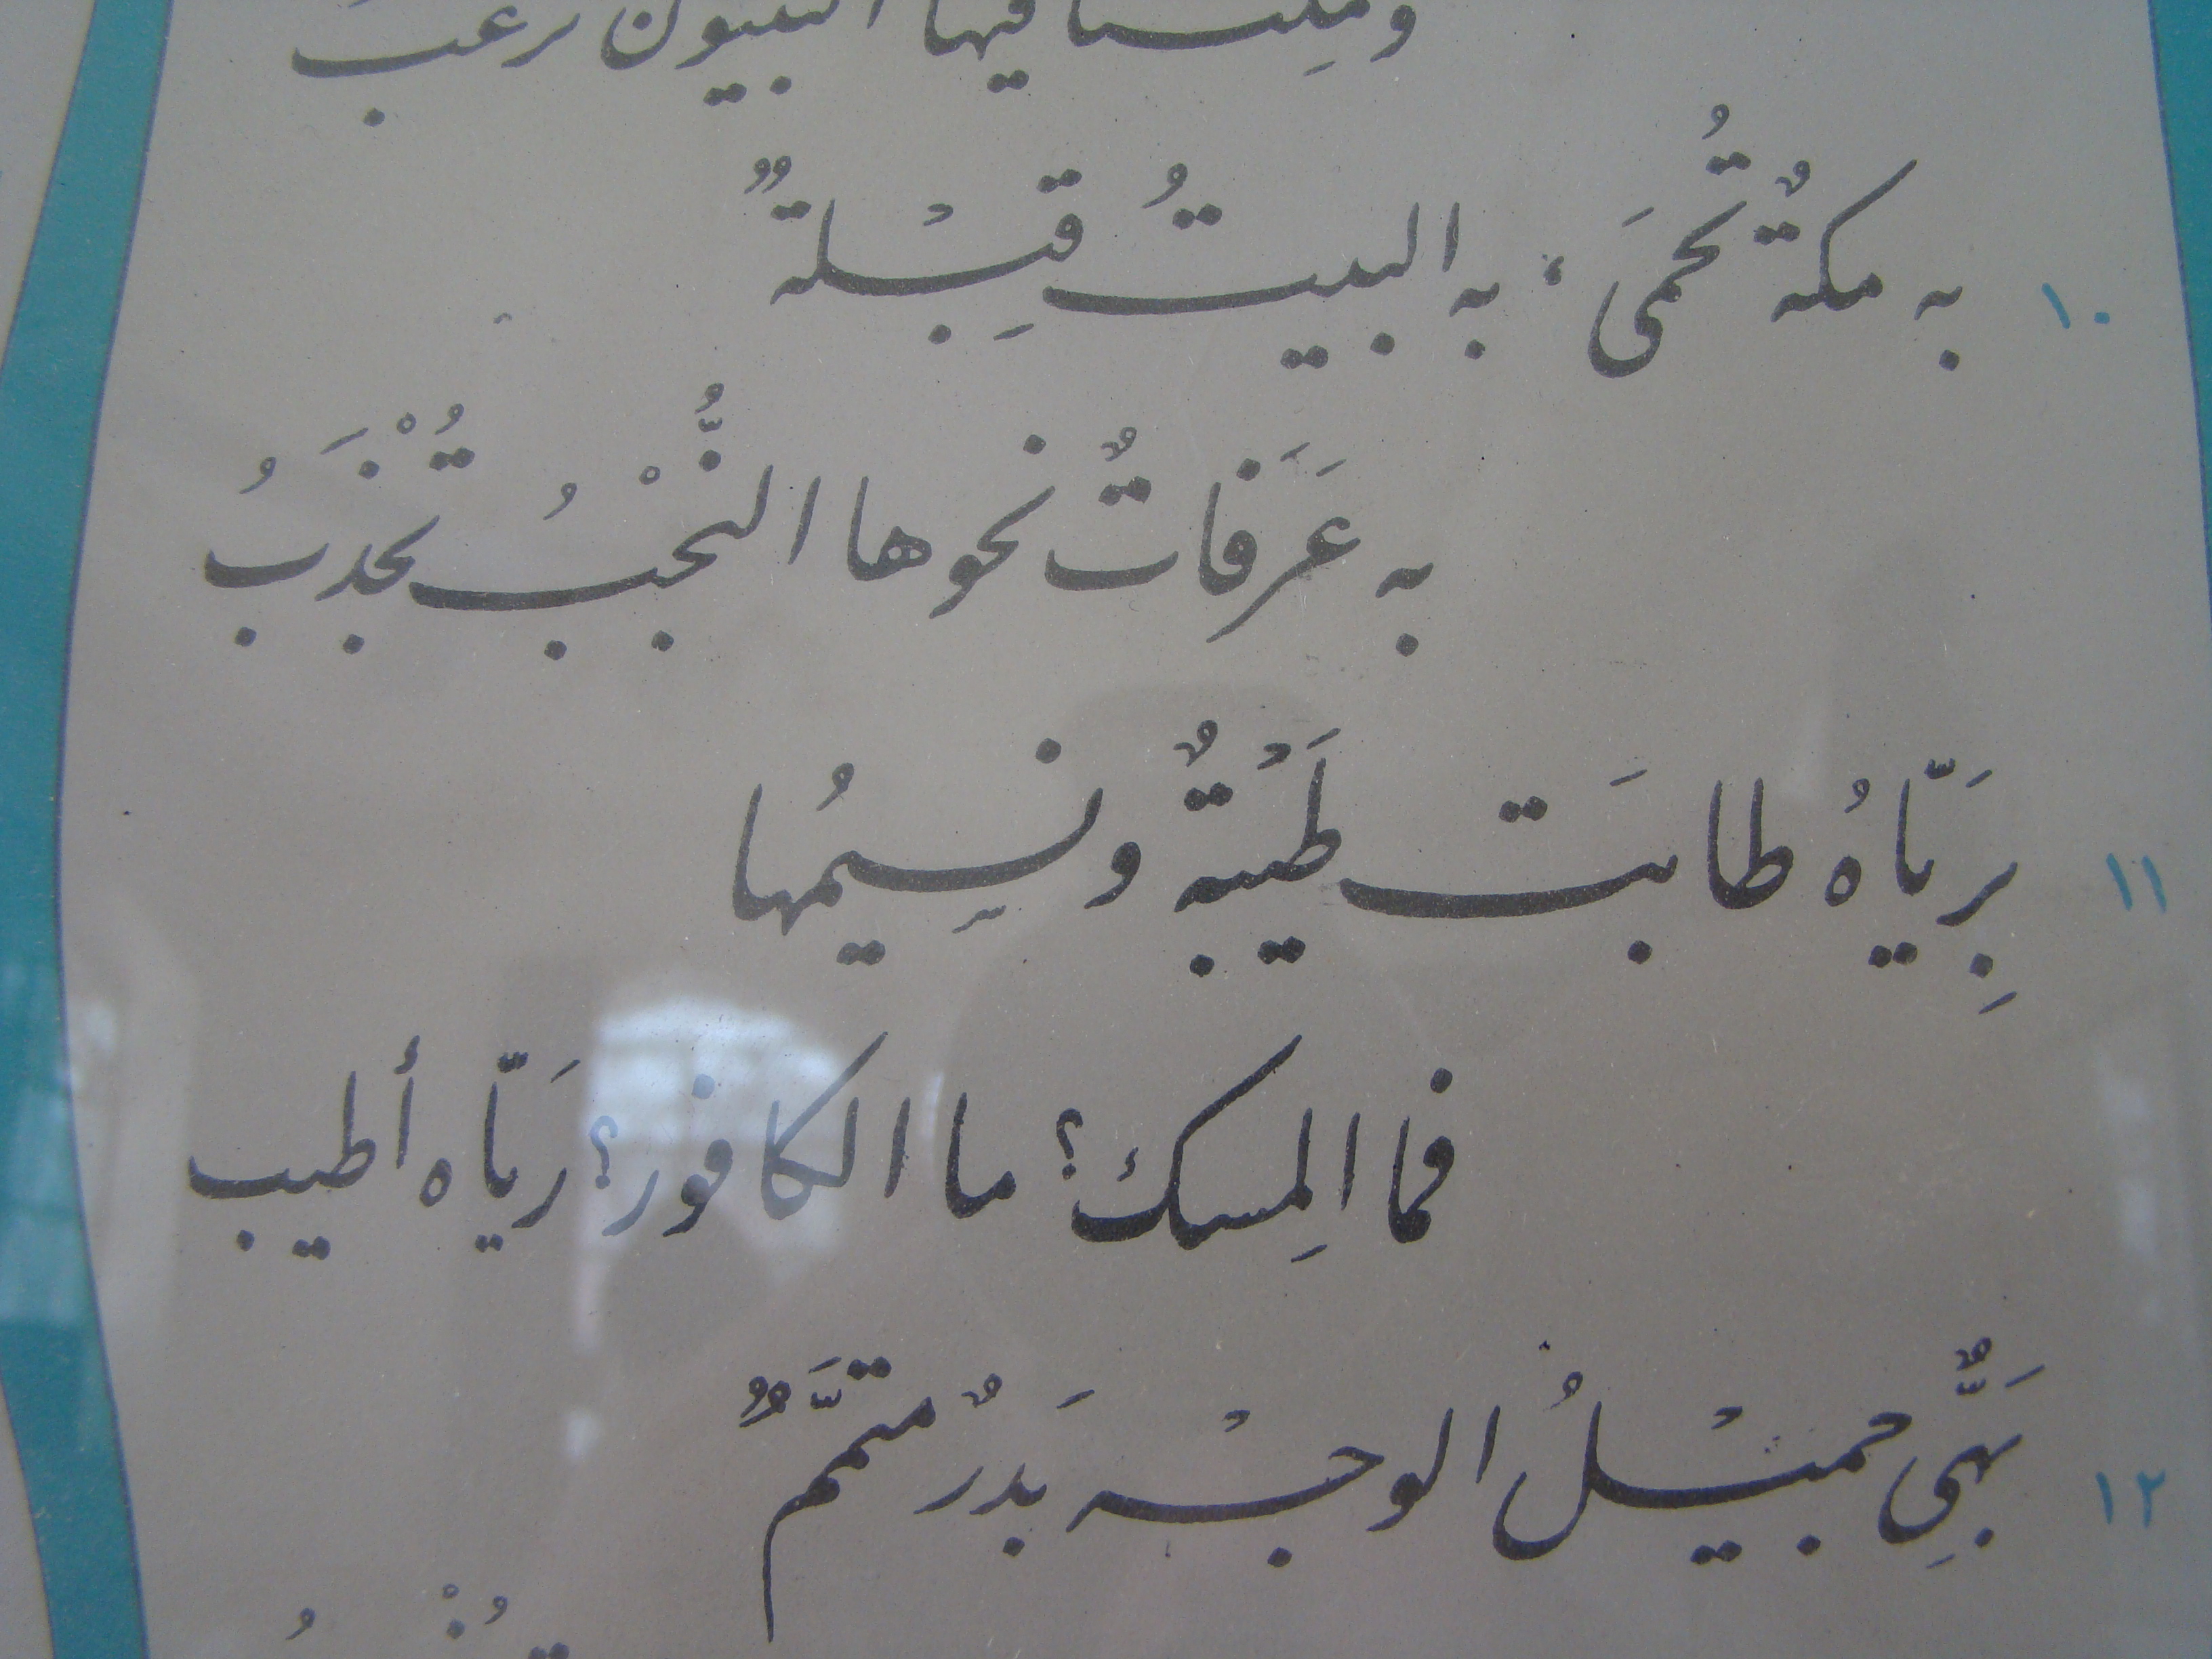 فيها النبيون ترغب
١٠ به مكةٌ تُحمَى، به البيتُ قِبْلةٌ
به عَرَفاتٌ نحوها النُّجْبُ تُجْذَبُ
١١ بِرَيّاهُ طابَت طَيْبةٌ ونسِيمُها
فما المِسك؟ ما الكافور؟ رَيّاه أطيب
١٢ بَهِيٌّ جميْلُ الوجْه بَدرٌ متمَّمٌ